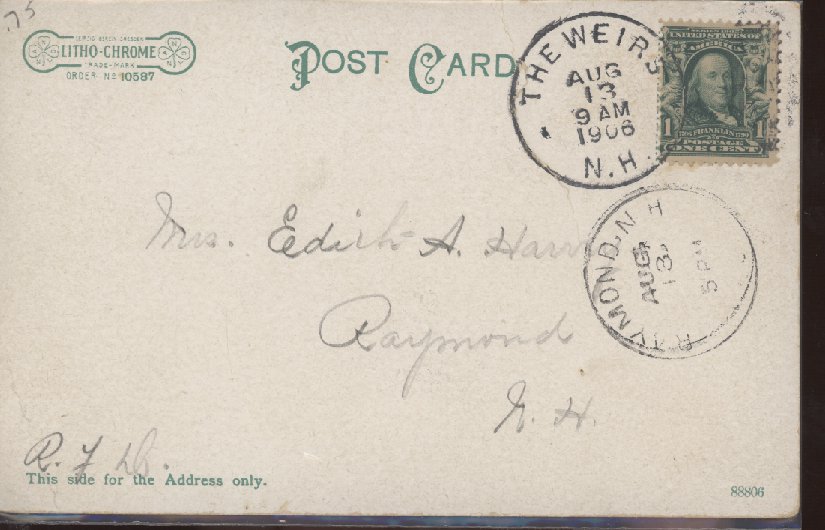 .75
LEIPZIG BERLIN DRESDEN
LITHO-CHROME
TRADE-MARK
ORDER Nº 10597
POST CARD
THE WEIRS
AUG
13
9 AM
1906
N.H.
SERIES 1902
UNITED STATES OF
AMERICA
1 FRANKLIN 1
POSTAGE
ONE CENT
RAYMOND, N H
AUG
13
5 PM
Mrs. Edith A.
Raymond
N. H.
R. F. D.
This side for the Address only.
88806